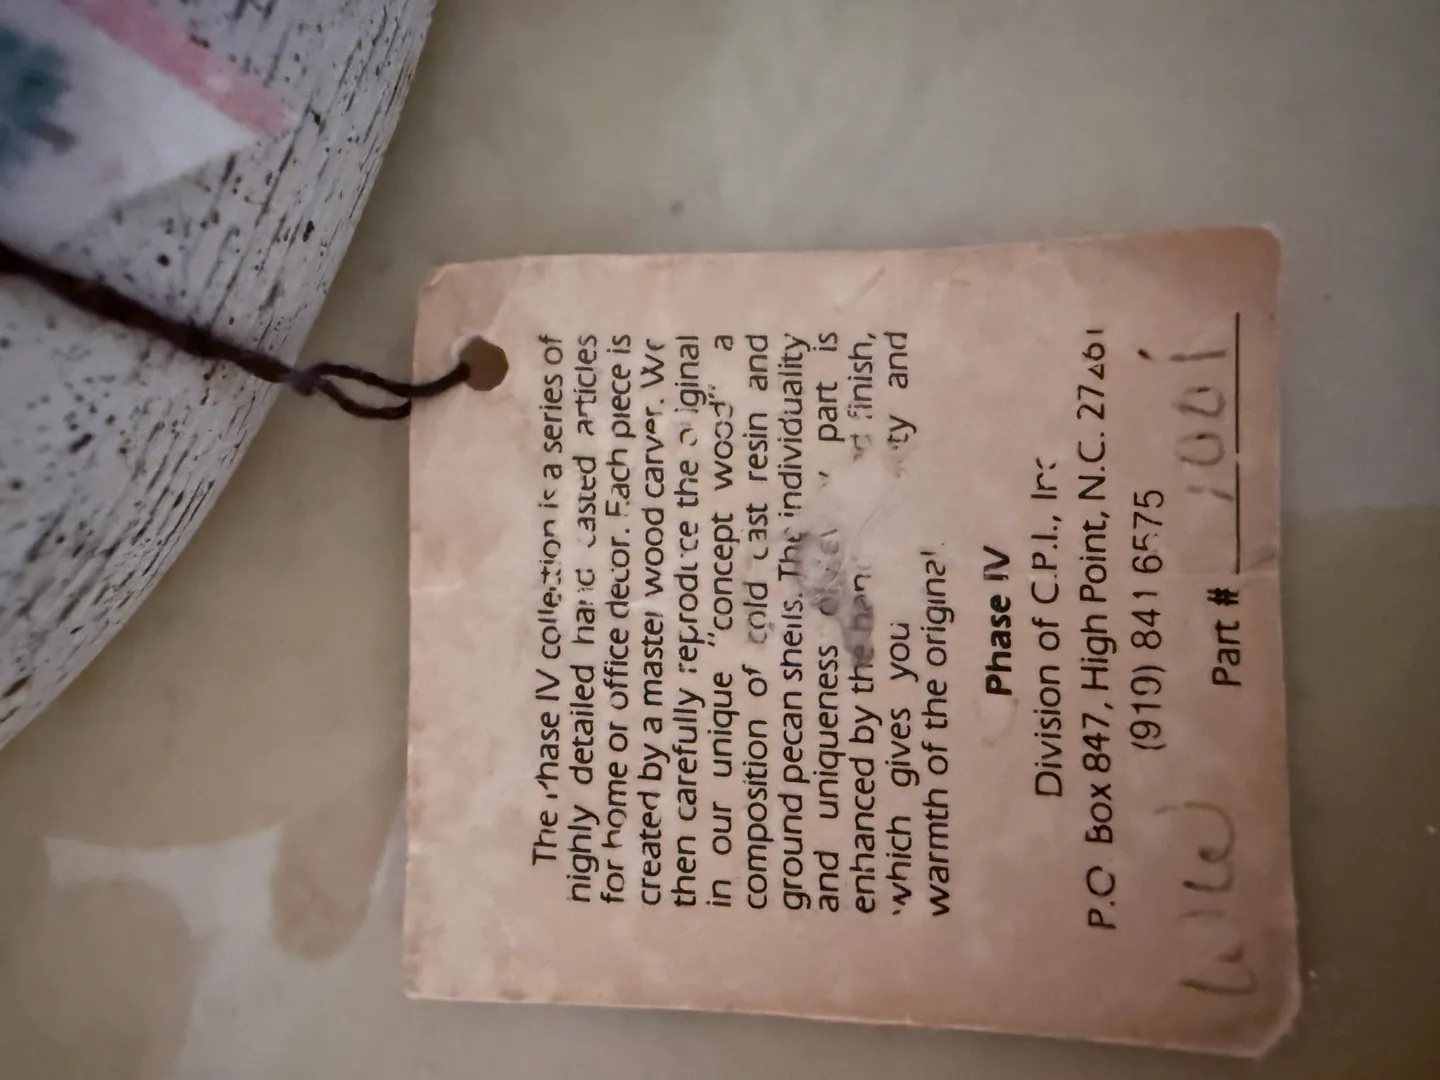 The Phase IV collection is a series of
highly detailed hand casted articles
for home or office decor. Each piece is
created by a master wood carver. We
then carefully reproduce the original
in our unique "concept wood" a
composition of cold cast resin and
ground pecan shells. The individuality
and uniqueness part is
enhanced by the hand finish,
which gives you and
warmth of the original.
Phase IV
Division of C.P.I., Inc
P.O. Box 847, High Point, N.C. 27261
(919) 841 6575
Part # 1001